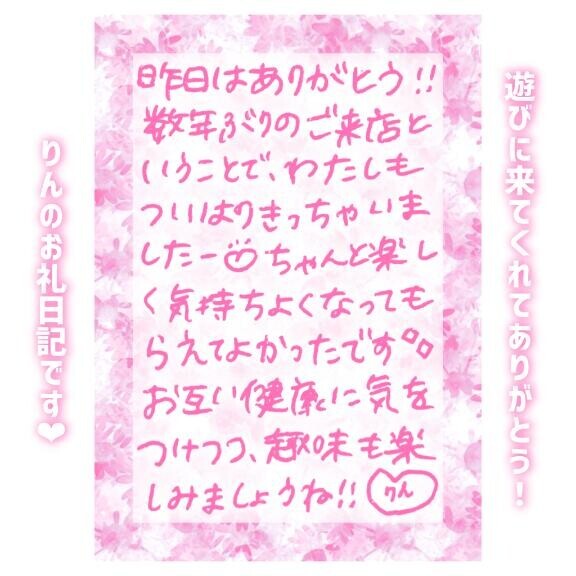 遊びに来てくれてありがとう！
昨日はありがとう!!
数年ぶりのご来店と
いうことで、わたしも
ついはりきっちゃいま
したー♡ちゃんと楽し
く気持ちよくなっても
らえてよかったです
お互い健康に気を
つけつつ、趣味も楽
しみましょうね!!
りん
りんのお礼日記です❤